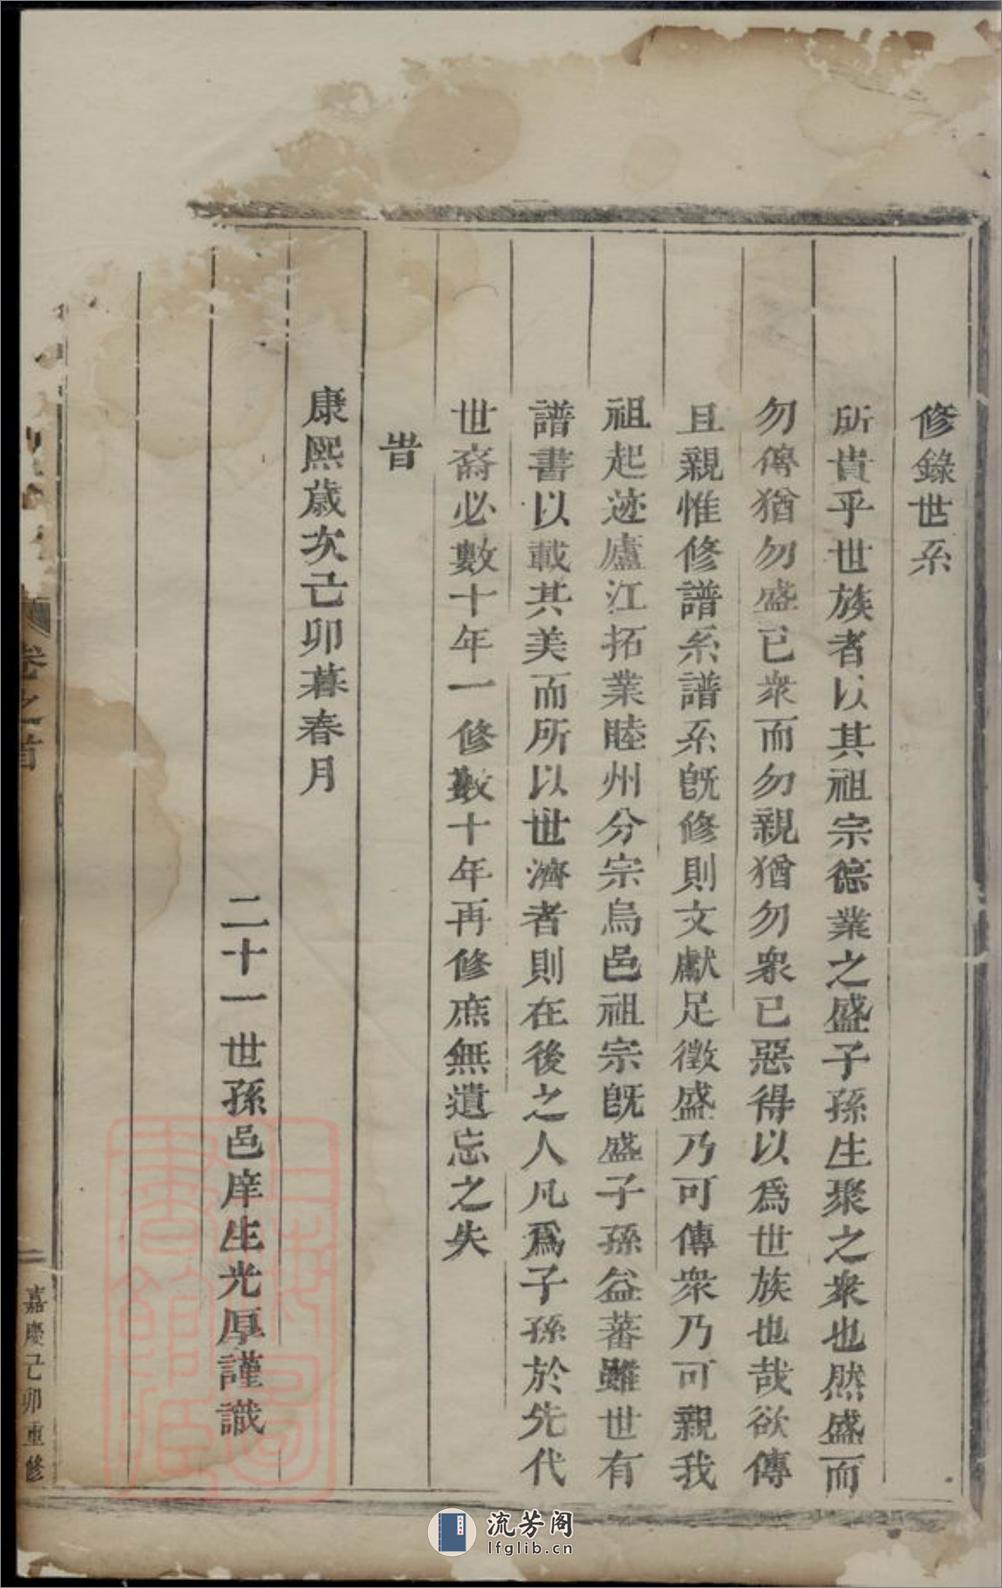 修錄世系
所貴乎世族者以其祖宗德業之盛子孫生聚之衆也然盛而
勿傳猶勿盛已衆而勿親猶勿衆已惡得以爲世族也哉欲傳
且親惟修譜系譜系旣修則文獻足徵盛乃可傳衆乃可親我
祖起迹廬江拓業睦州分宗烏邑祖宗旣盛子孫益蕃雖世有
譜書以載其美而所以世濟者則在後之人凡爲子孫於先代
世裔必數十年一修數十年再修庶無遺忘之失
旹
康熙歲次己卯暮春月
二十一世孫邑庠生光厚謹識
卷之首
二
嘉慶己卯重修
上海圖書館藏
流芳阁
lfglib.cn